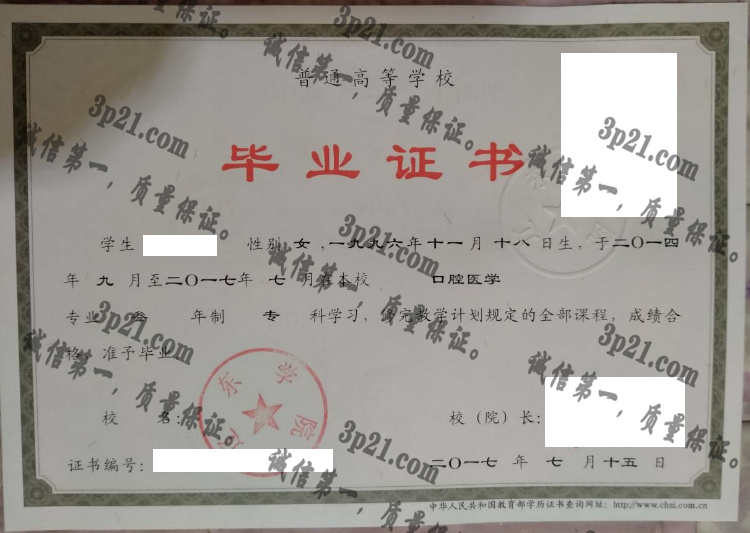 普通高等学校
毕业证书
学生 性别 女 ,一九九六年十一月十八日生，于二〇一四
年 九 月至二〇一七年 七 月在本校 口腔医学
专业 叁 年制 专 科学习，修完教学计划规定的全部课程，成绩合
格，准予毕业。
校 名： 校（院）长：
东学院
证书编号： 二〇一七 年 七 月十五日
中华人民共和国教育部学历证书查询网址：http://www.chsi.com.cn
3p21.com
诚信第一，质量保证。
3p21.com
诚信第一，质量保证。
3p21.com
诚信第一，质量保证。
3p21.com
诚信第一，质量保证。
3p21.com
诚信第一，质量保证。
3p21.com
诚信第一，质量保证。
3p21.com
诚信第一，质量保证。
质量保证。